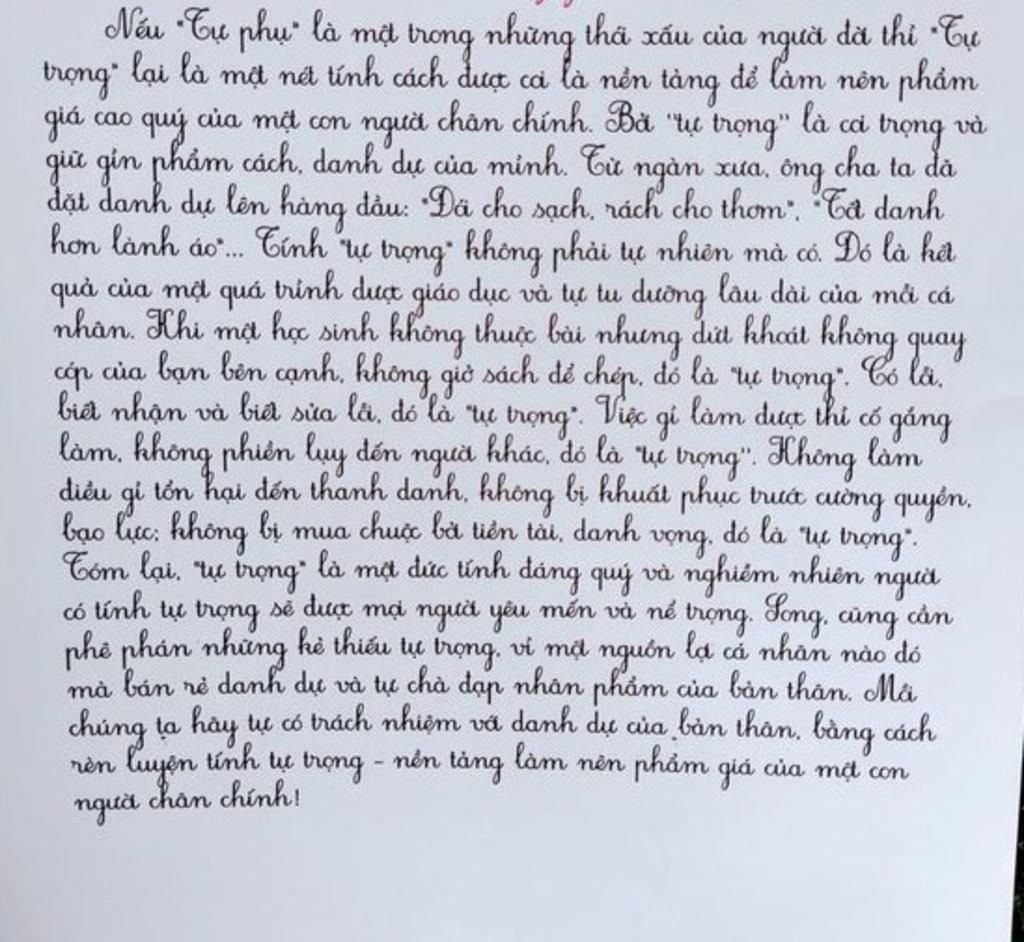 Nếu "Tự phụ" là một trong những thói xấu của người đời thì "Tự
trọng" lại là một nét tính cách được coi là nền tảng để làm nên phẩm
giá cao quý của một con người chân chính. Bởi "tự trọng" là coi trọng và
giữ gìn phẩm cách, danh dự của mình. Từ ngàn xưa, ông cha ta đã
đặt danh dự lên hàng đầu: "Đói cho sạch, rách cho thơm", "Tốt danh
hơn lành áo"... Tính "tự trọng" không phải tự nhiên mà có. Đó là kết
quả của một quá trình được giáo dục và tự tu dưỡng lâu dài của mỗi cá
nhân. Khi một học sinh không thuộc bài nhưng dứt khoát không quay
cóp của bạn bên cạnh, không giở sách để chép, đó là "tự trọng". Có lỗi,
biết nhận và biết sửa lỗi, đó là "tự trọng". Việc gì làm được thì cố gắng
làm, không phiền lụy đến người khác, đó là "tự trọng". Không làm
điều gì tổn hại đến thanh danh, không bị khuất phục trước cường quyền,
bạo lực; không bị mua chuộc bởi tiền tài, danh vọng, đó là "tự trọng".
Tóm lại, "tự trọng" là một đức tính đáng quý và nghiễm nhiên người
có tính tự trọng sẽ được mọi người yêu mến và nể trọng. Song, cũng cần
phê phán những kẻ thiếu tự trọng, vì một nguồn lợi cá nhân nào đó
mà bán rẻ danh dự và tự chà đạp nhân phẩm của bản thân. Mỗi
chúng ta hãy tự có trách nhiệm với danh dự của bản thân, bằng cách
rèn luyện tính tự trọng - nền tảng làm nên phẩm giá của một con
người chân chính!